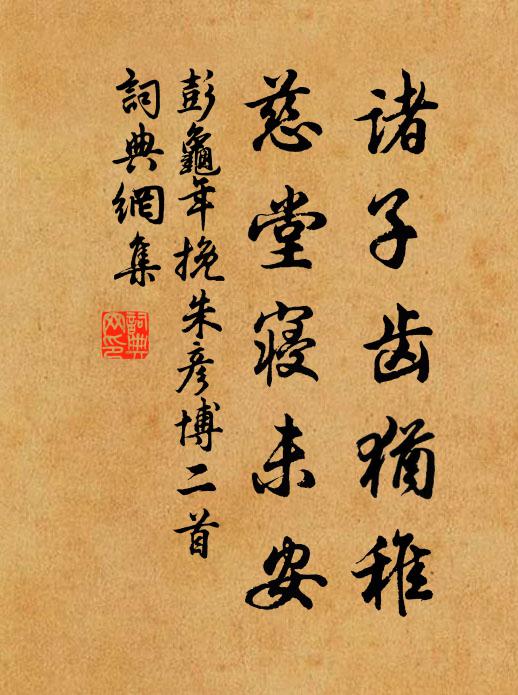 诸子齿犹稚
慈堂寝未安
彭龜年挽朱彦博二首
詞典網集
詞典网印